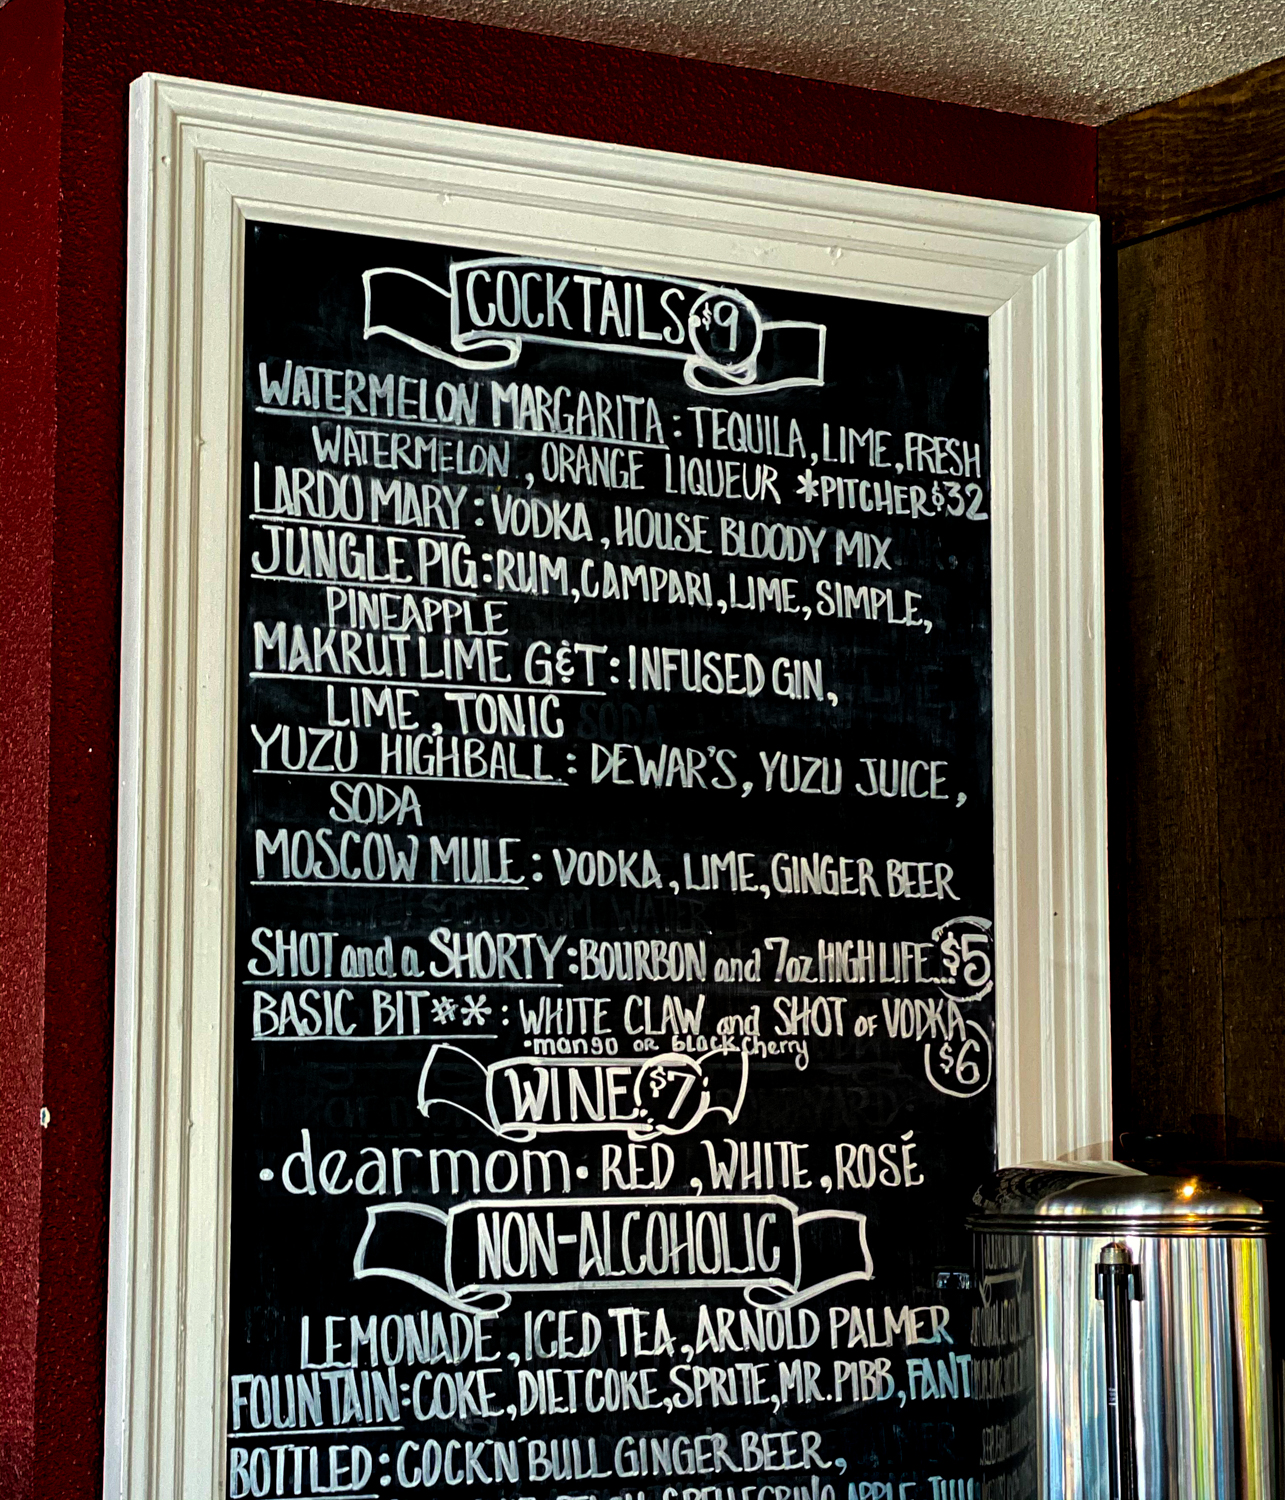 COCKTAILS $9
WATERMELON MARGARITA: TEQUILA, LIME, FRESH
WATERMELON, ORANGE LIQUEUR *PITCHER $32
LARDO MARY: VODKA, HOUSE BLOODY MIX
JUNGLE PIG: RUM, CAMPARI, LIME, SIMPLE,
PINEAPPLE
MAKRUT LIME G&T: INFUSED GIN,
LIME, TONIC
YUZU HIGHBALL: DEWAR'S, YUZU JUICE,
SODA
MOSCOW MULE: VODKA, LIME, GINGER BEER
SHOT and a SHORTY: BOURBON and 7oz HIGH LIFE...$5
BASIC BIT#*: WHITE CLAW and SHOT OF VODKA
•mango OR black cherry $6
WINE: $7
•dear mom• RED, WHITE, ROSÉ
NON-ALCOHOLIC
LEMONADE, ICED TEA, ARNOLD PALMER
FOUNTAIN: COKE, DIET COKE, SPRITE, MR. PIBB, FANT
BOTTLED: COCK'N'BULL GINGER BEER,
APPLE